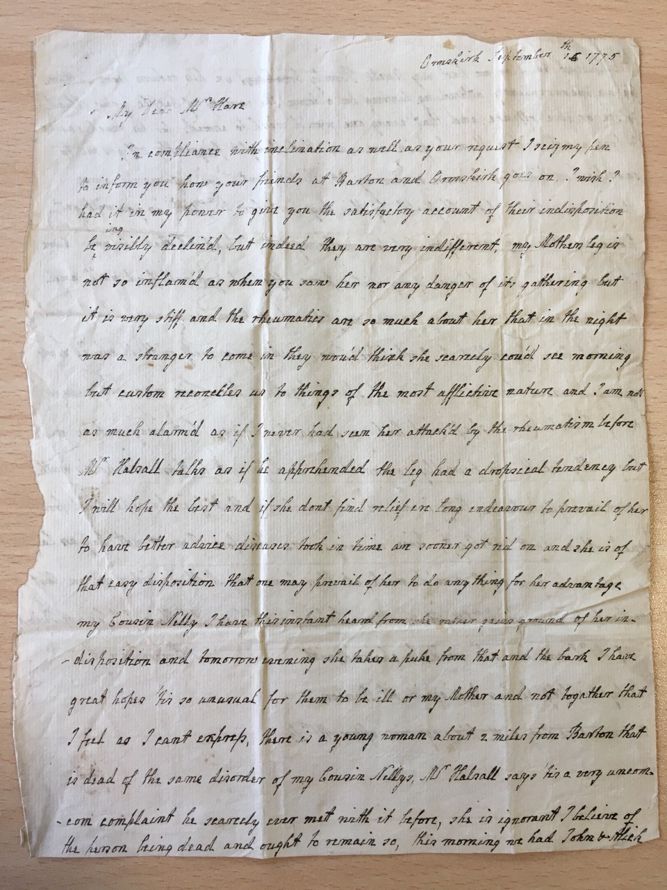 Ormskirk September 15th 1775
My Dear Mrs Hare
In compliance with inclination as well as your request I seize my pen
to inform you how your friends at Barton and Ormskirk goes on, I wish I
had it in my power to give you the satisfactory account of their indisposition
being visibly declin'd, but indeed they are very indifferent, my Mothers leg is
not so inflam'd as when you saw her nor any danger of its gathering but
it is very stiff and the rheumatics are so much about her that in the night
was a stranger to come in they wou'd think she scarcely cou'd see morning
but custom reconciles us to things of the most afflictive nature and I am not
as much alarm'd as if I never had seen her attack'd by the rheumatism before
Mr Halsall talks as if he apprehended the leg had a dropsical tendency but
I will hope the best and if she dont find relief ere long endeavour to prevail of her
to have better advice diseases took in time are sooner got rid on and she is of
that easy disposition that one may prevail of her to do any thing for her advantage
my Cousin Nelly I have this instant heard from she rather gains ground of her in-
-disposition and tomorrow evening she takes a puke from that and the bark I have
great hopes 'tis so unusual for them to be ill or my Mother and not togather that
I feel as I cant express, there is a young woman about 2 miles from Barton that
is dead of the same disorder of my Cousin Nellys, Mr Halsall says 'tis a very uncom-
-con complaint he scarcely ever met with it before, she is ignorant I believe of
the person being dead and ought to remain so, this morning we had John &